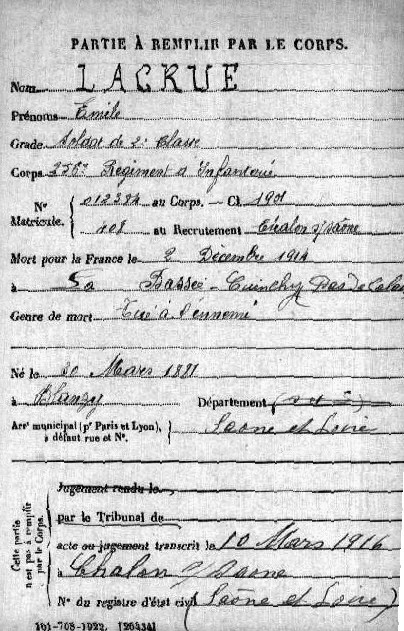 PARTIE À REMPLIR PAR LE CORPS.
Nom LACRUE
Prénoms Emile
Grade Soldat de 2e Classe
Corps 256e Régiment d'Infanterie
N° Matricule. 012384 au Corps. — Cl. 1901
408 au Recrutement Chalon s/saône
Mort pour la France le 2 Décembre 1914
à La Bassée - Cuinchy Pas de Calais
Genre de mort Tué à l'ennemi
Né le 20 Mars 1881
à Blanzy Département
Arr' municipal (p' Paris et Lyon), à défaut rue et N°. Saône et Loire
Cette partie n'est pas à remplir par le Corps.
Jugement rendu le
par le Tribunal de
acte ou jugement transcrit le 10 Mars 1916
à Chalon s/ Saone
N° du registre d'état civil (Saône et Loire)
161-708-1922. [26434]